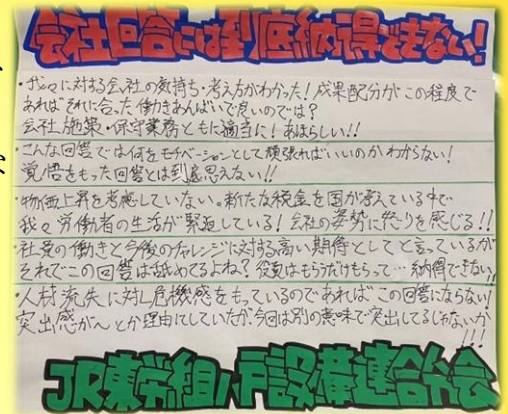 会社回答には到底納得できない!
・我々に対する会社の気持ち・考え方がわかった!成果配分がこの程度で
あればそれに合った働きあんばいで良いのでは?
会社施策・保守業務ともに適当に!あほらしい!!
・こんな回答では何をモチベーションとして頑張ればいいのかわからない!
覚悟をもった回答とは到底思えない!!
・物価上昇を考慮していない。新たな税金を国が考えている中で
我々労働者の生活が緊迫している!会社の姿勢に怒りを感じる!!
・社員の働きと今後のチャレンジに対する高い期待としてと言っているが
それでこの回答は舐めてるよね?役員はもらうだけもらって…納得できない!!
・人材流失に対し危機感をもっているのであればこの回答にならない!
突出感がんとか理由にしていたが、今回は別の意味で突出してるじゃないか
!!!
JR東労組八戸設備連合分会